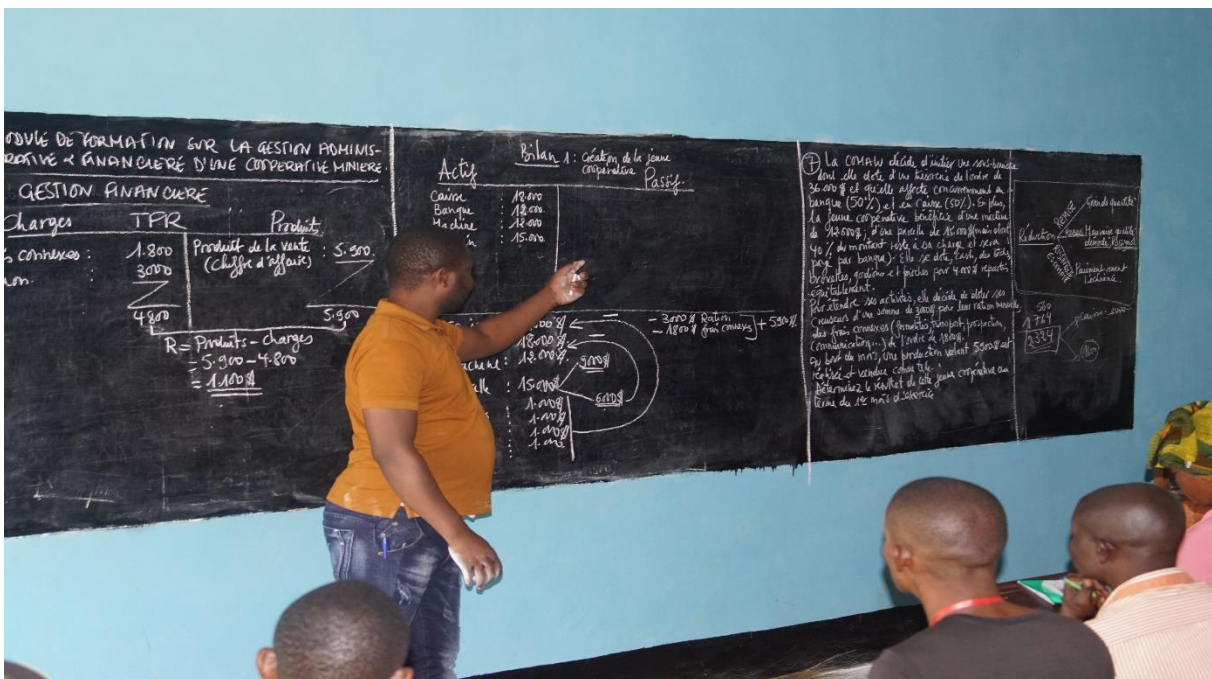 ODULE DE FORMATION SUR LA GESTION ADMINIS-
RATIVE & FINANCIERE D'UNE COOPERATIVE MINIERE.
GESTION FINANCIERE
Charges TPR Produit
s connexes : 1.800
ion. : 3000
4800
Produit de la vente : 5.900
(Chiffre d'affaire)
5.900
R = Produits - charges
= 5.900 - 4.800
= 1.100$
Bilan 1 : Création de la jeune
coopérative
Actif Passif.
Caisse : 18.000
Banque : 12.000
Machine : 12.000
: 15.000
18.000$
12.000$
: 15.000$
1.000$
1.000$
1.000$
1.000
9000$
6000$
- 3000$ Ration
- 1800$ frais connexes
+ 5900$
7 La COMAW décide d'initier une
dont elle dote d'une trésorerie de l'ordre de
36.000$ et qu'elle affecte concurremment en
banque (50%) et en caisse (50%). En plus,
la jeune coopérative bénéficie d'une machine
de 12000$; d'une parcelle de 15.000$ dont
40% du montant reste à sa charge et sera
payé par banque). Elle se dote, cash, des
brouettes, et pioches pour 4.000$ répartis
équitablement.
Pour étendre ses activités, elle décide de
creuseurs d'une somme de 3000$ pour leur ration mensuelle,
des frais connexes ( transport, prospection,
communication...) de l'ordre de 1800$.
Au bout du mois, une production valant 5900$ est
réalisée et vendue
Déterminez le résultat de cette jeune coopérative au
terme du 1er mois d'exercice
Réduction
Remise
Grande quantité
Rabais
Mauvaise qualité
Escompte
Paiement avant
l'échéance.
560
1764
2324
Caisse